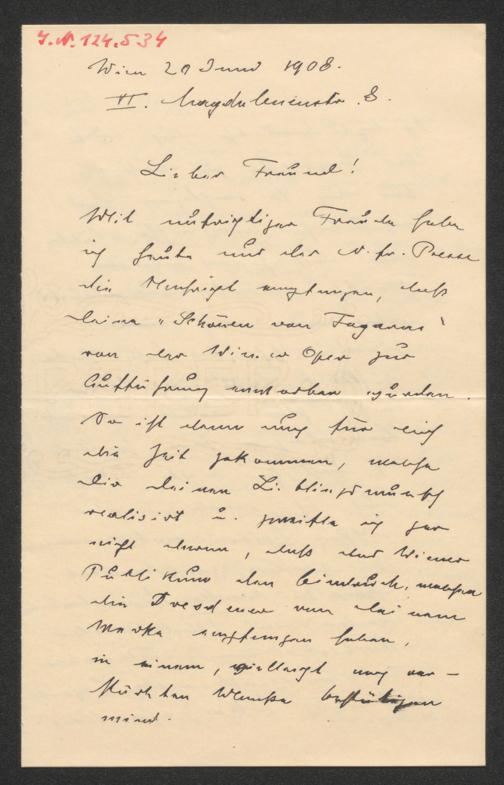 J.N. 124.534
Wien 20 Juni 1908.
VI. Magdalenenstr. 8.
Lieber Freund!
Mit aufrichtiger Freude habe
ich heute aus der N. fr. Presse
die Nachricht empfangen, daß
deine „Schönen von Fogaras“
von der Wiener Oper zur
Aufführung erworben wurden.
So ist denn auch für dich
die Zeit gekommen, welche
dir deinen Lieblingswunsch
realisirt u. zweifle ich gar
nicht daran, daß das Wiener
Publikum den Eindruck, welchen
die Dresdener von deinem
Werke empfangen haben,
in einem, vielleicht noch ver-
stärkten Maße bestätigen
wird.